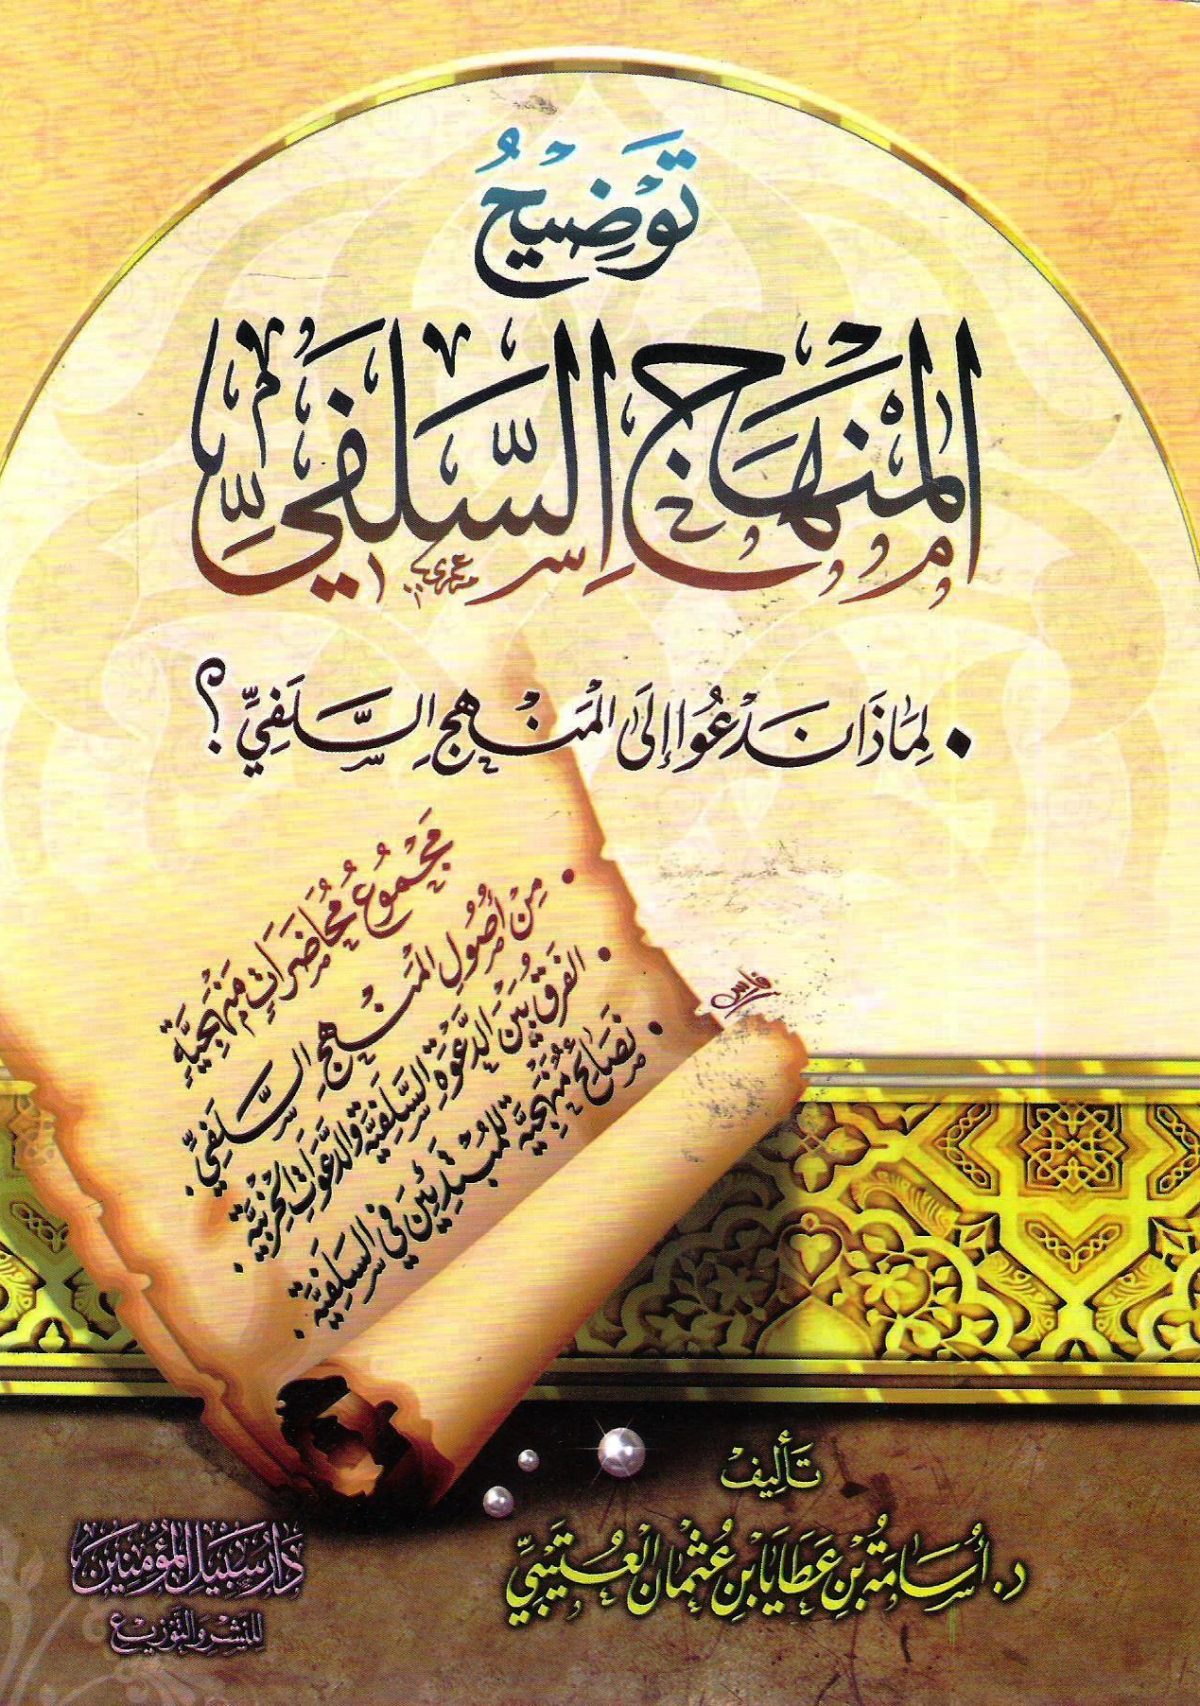 تَوْضِيْحُ
المِنْهَاجِ السَّلَفِيِّ
• لِمَاذَا نَدْعُوا إِلَى المَنْهَجِ السَّلَفِيِّ ؟
مَجْمُوعُ مُحَاضَرَاتٍ مَنْهَجِيَّةٍ
• مِنْ أُصُولِ المَنْهَجِ السَّلَفِيِّ.
• الفَرْقُ بَيْنَ الدَّعْوَةِ السَّلَفِيَّةِ وَالدَّعَوَاتِ الحِزْبِيَّةِ.
• نَصَائِحُ مَنْهَجِيَّةٌ لِلمُبْتَدِئِينَ فِي السَّلَفِيَّةِ.
فارس
تَأْلِيفُ
د. أُسَامَةُ بْنِ عَطَايَا بْنِ عُثْمَانَ العُتَيْبِيِّ
دَارُ سَبِيلِ المُؤْمِنِينَ
لِلنَّشْرِ وَالتَّوْزِيعِ